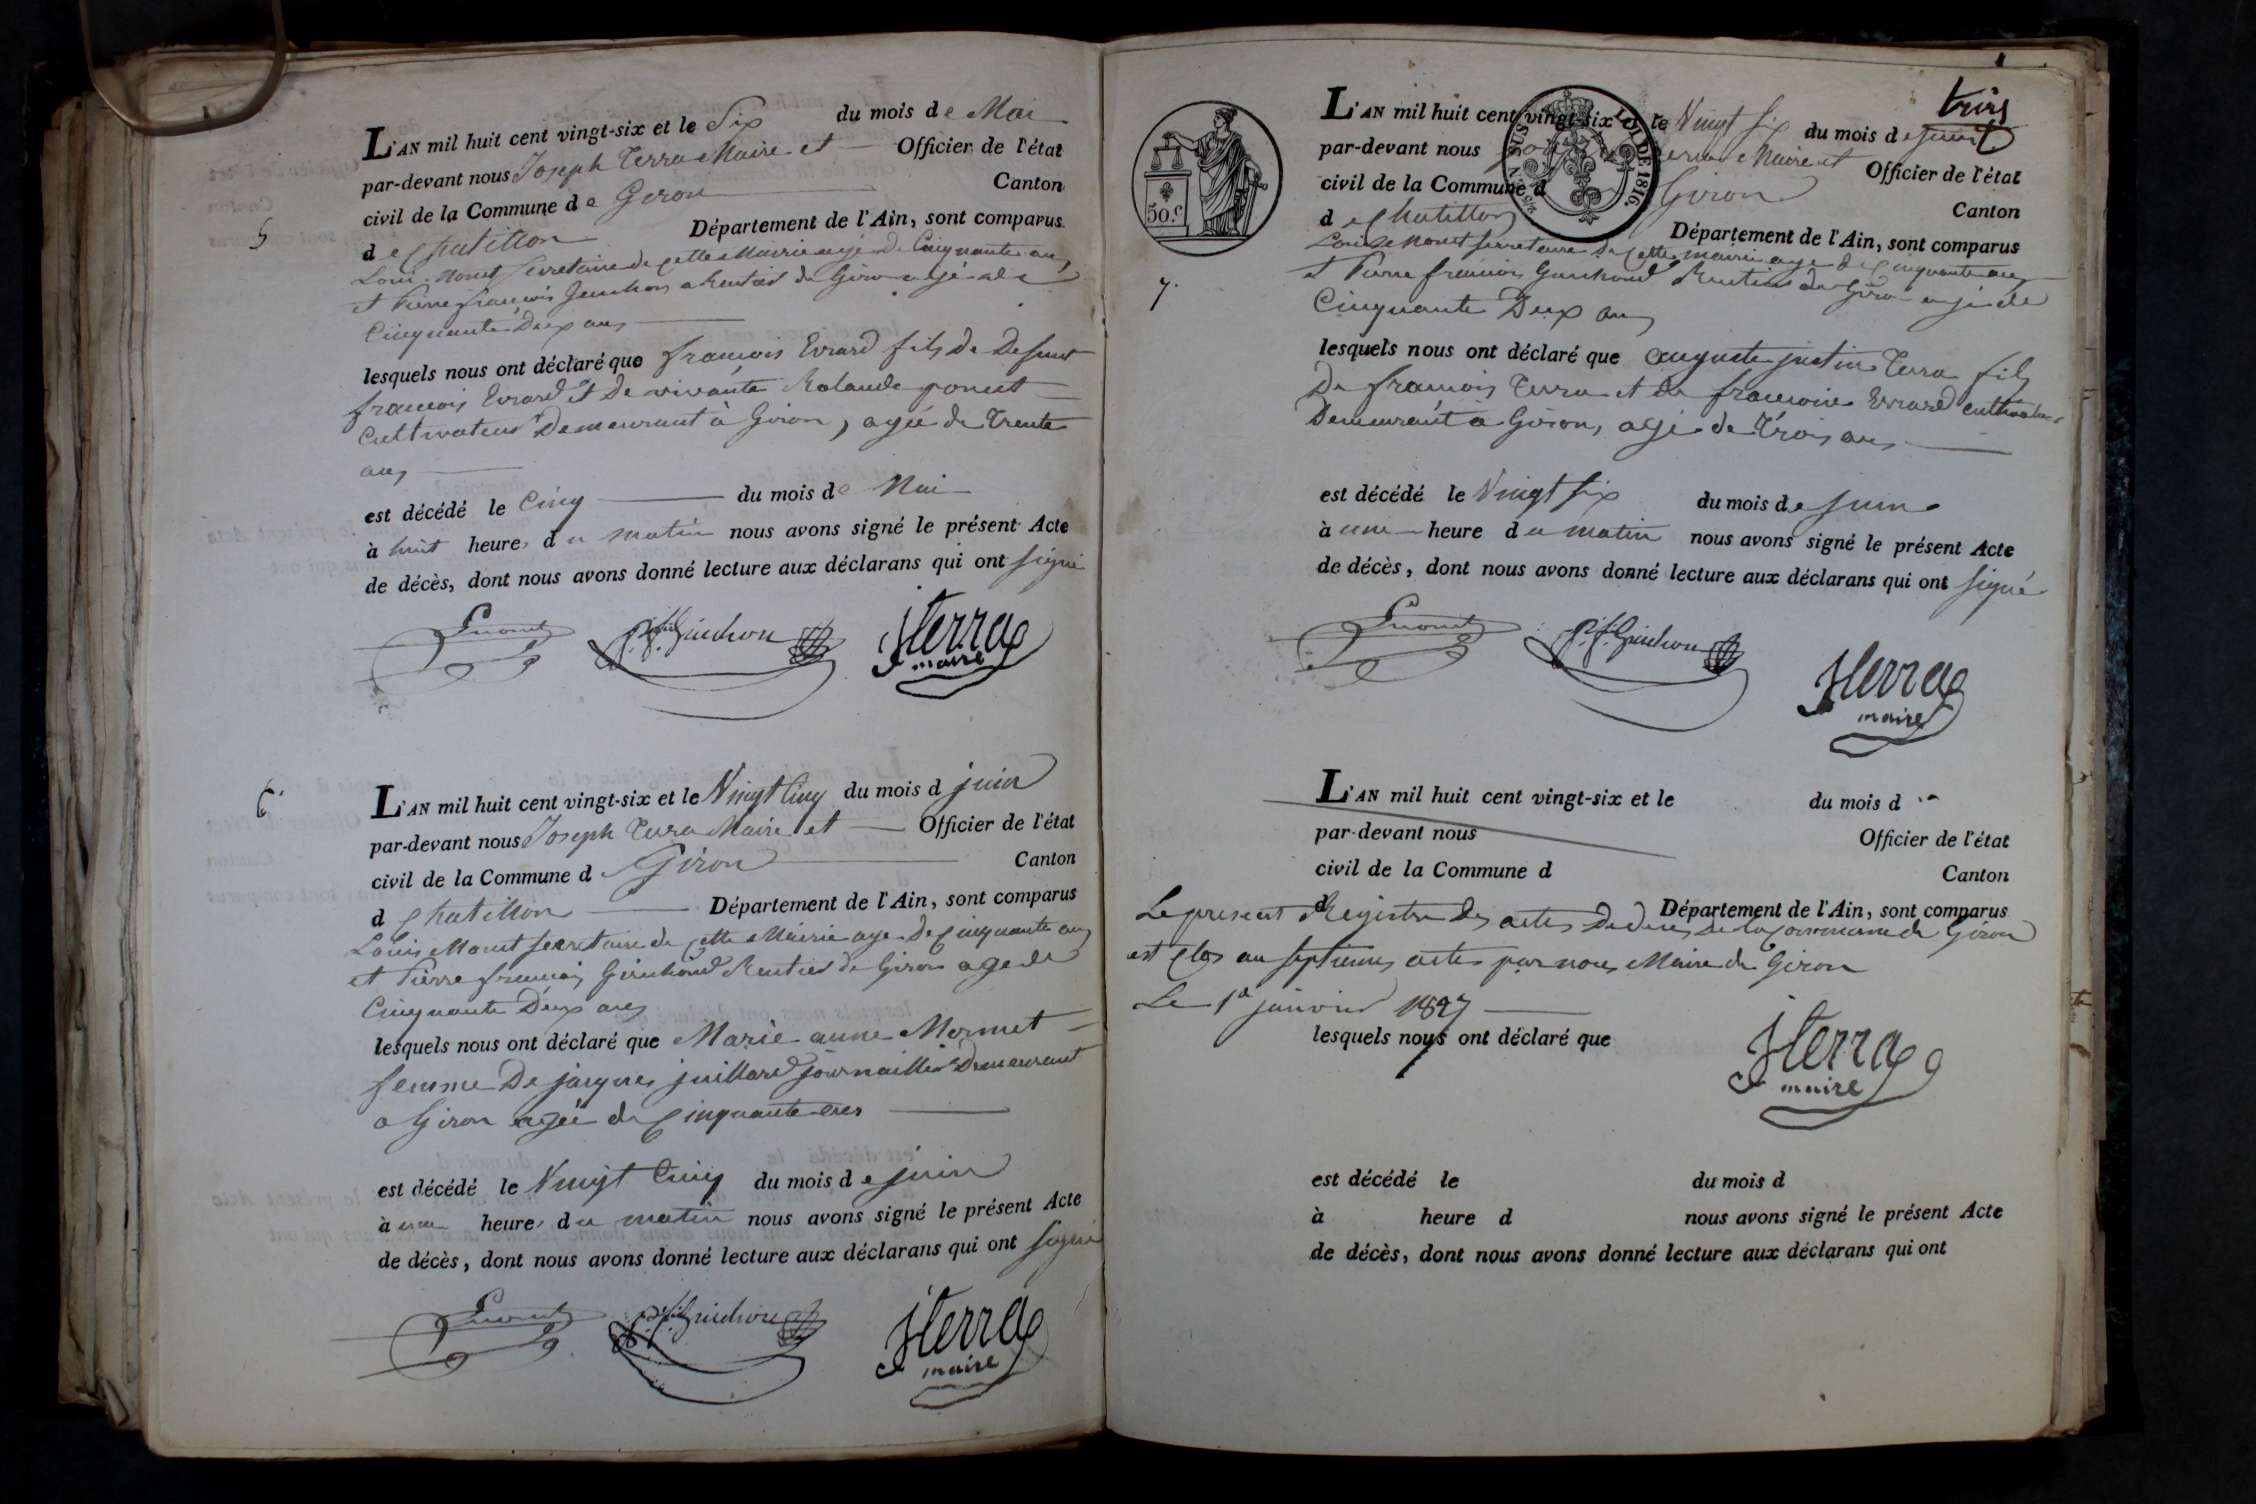 5
L'AN mil huit cent vingt-six et le Six du mois de Mai
par-devant nous Joseph Terra Maire et Officier de l'état
civil de la Commune de Giron Canton
de Chatillon Département de l'Ain, sont comparus
Louis Monet Secretaire de cette Mairie agé de Cinquante ans
et Pierre françois Guichon Rentier de Giron agé de
Cinquante Deux ans
lesquels nous ont déclaré que françois Evrard fils de Defunt
francois Evrard et De vivante Rolande ponset
Cultivateur Demeurant à Giron, agée de Trente
ans
est décédé le Cinq du mois de Mai
à huit heure du matin nous avons signé le présent Acte
de décès, dont nous avons donné lecture aux déclarans qui ont signé
Lmonet P. f. Guichon JTerra
maire
6.
L'AN mil huit cent vingt-six et le Vingt Cinq du mois d juin
par-devant nous Joseph Terra Maire et Officier de l'état
civil de la Commune d Giron Canton
d Chatillon Département de l'Ain, sont comparus
Louis Monet Secretaire de cette Mairie age De Cinquante ans
et Pierre francois Guichond Rentier de Giron age de
Cinquante Deux ans
lesquels nous ont déclaré que Marie anne Mermet
femme De jacques juillard journaillier Demeurant
a Giron agée de Cinquante ans
est décédé le Vingt Cinq du mois de juin
à une heure du matin nous avons signé le présent Acte
de décès, dont nous avons donné lecture aux déclarans qui ont signé
Lmonet P. f. Guichon JTerra
maire
trois
50.c
LOI DE 1816.
7.
L'AN mil huit cent vingt-six et le Vingt Six du mois de juin
par-devant nous Maire et Officier de l'état
civil de la Commune d Giron Canton
de Chatillon Département de l'Ain, sont comparus
Louis Monet Secretaire De Cette mairie age de Cinquante ans
et Pierre francois Guichond Rentier de Giron agé de
Cinquante Deux ans
lesquels nous ont déclaré que auguste justin Terra fils
De francois Terra et de francoise Evrard cultivateur
Demeurant à Giron, agé de Trois ans
est décédé le Vingt Six du mois de juin
à une heure du matin nous avons signé le présent Acte
de décès, dont nous avons donné lecture aux déclarans qui ont signé
Lmonet P. f. Guichon JTerra
maire
L'AN mil huit cent vingt-six et le du mois d
par-devant nous Officier de l'état
civil de la Commune d Canton
d Département de l'Ain, sont comparus
Le present Registre des actes De deces De la Commune de Giron
est clos au septieme acte par nous Maire de Giron
Le 1er janvier 1827
lesquels nous ont déclaré que
JTerra
maire
est décédé le du mois d
à heure d nous avons signé le présent Acte
de décès, dont nous avons donné lecture aux déclarans qui ont